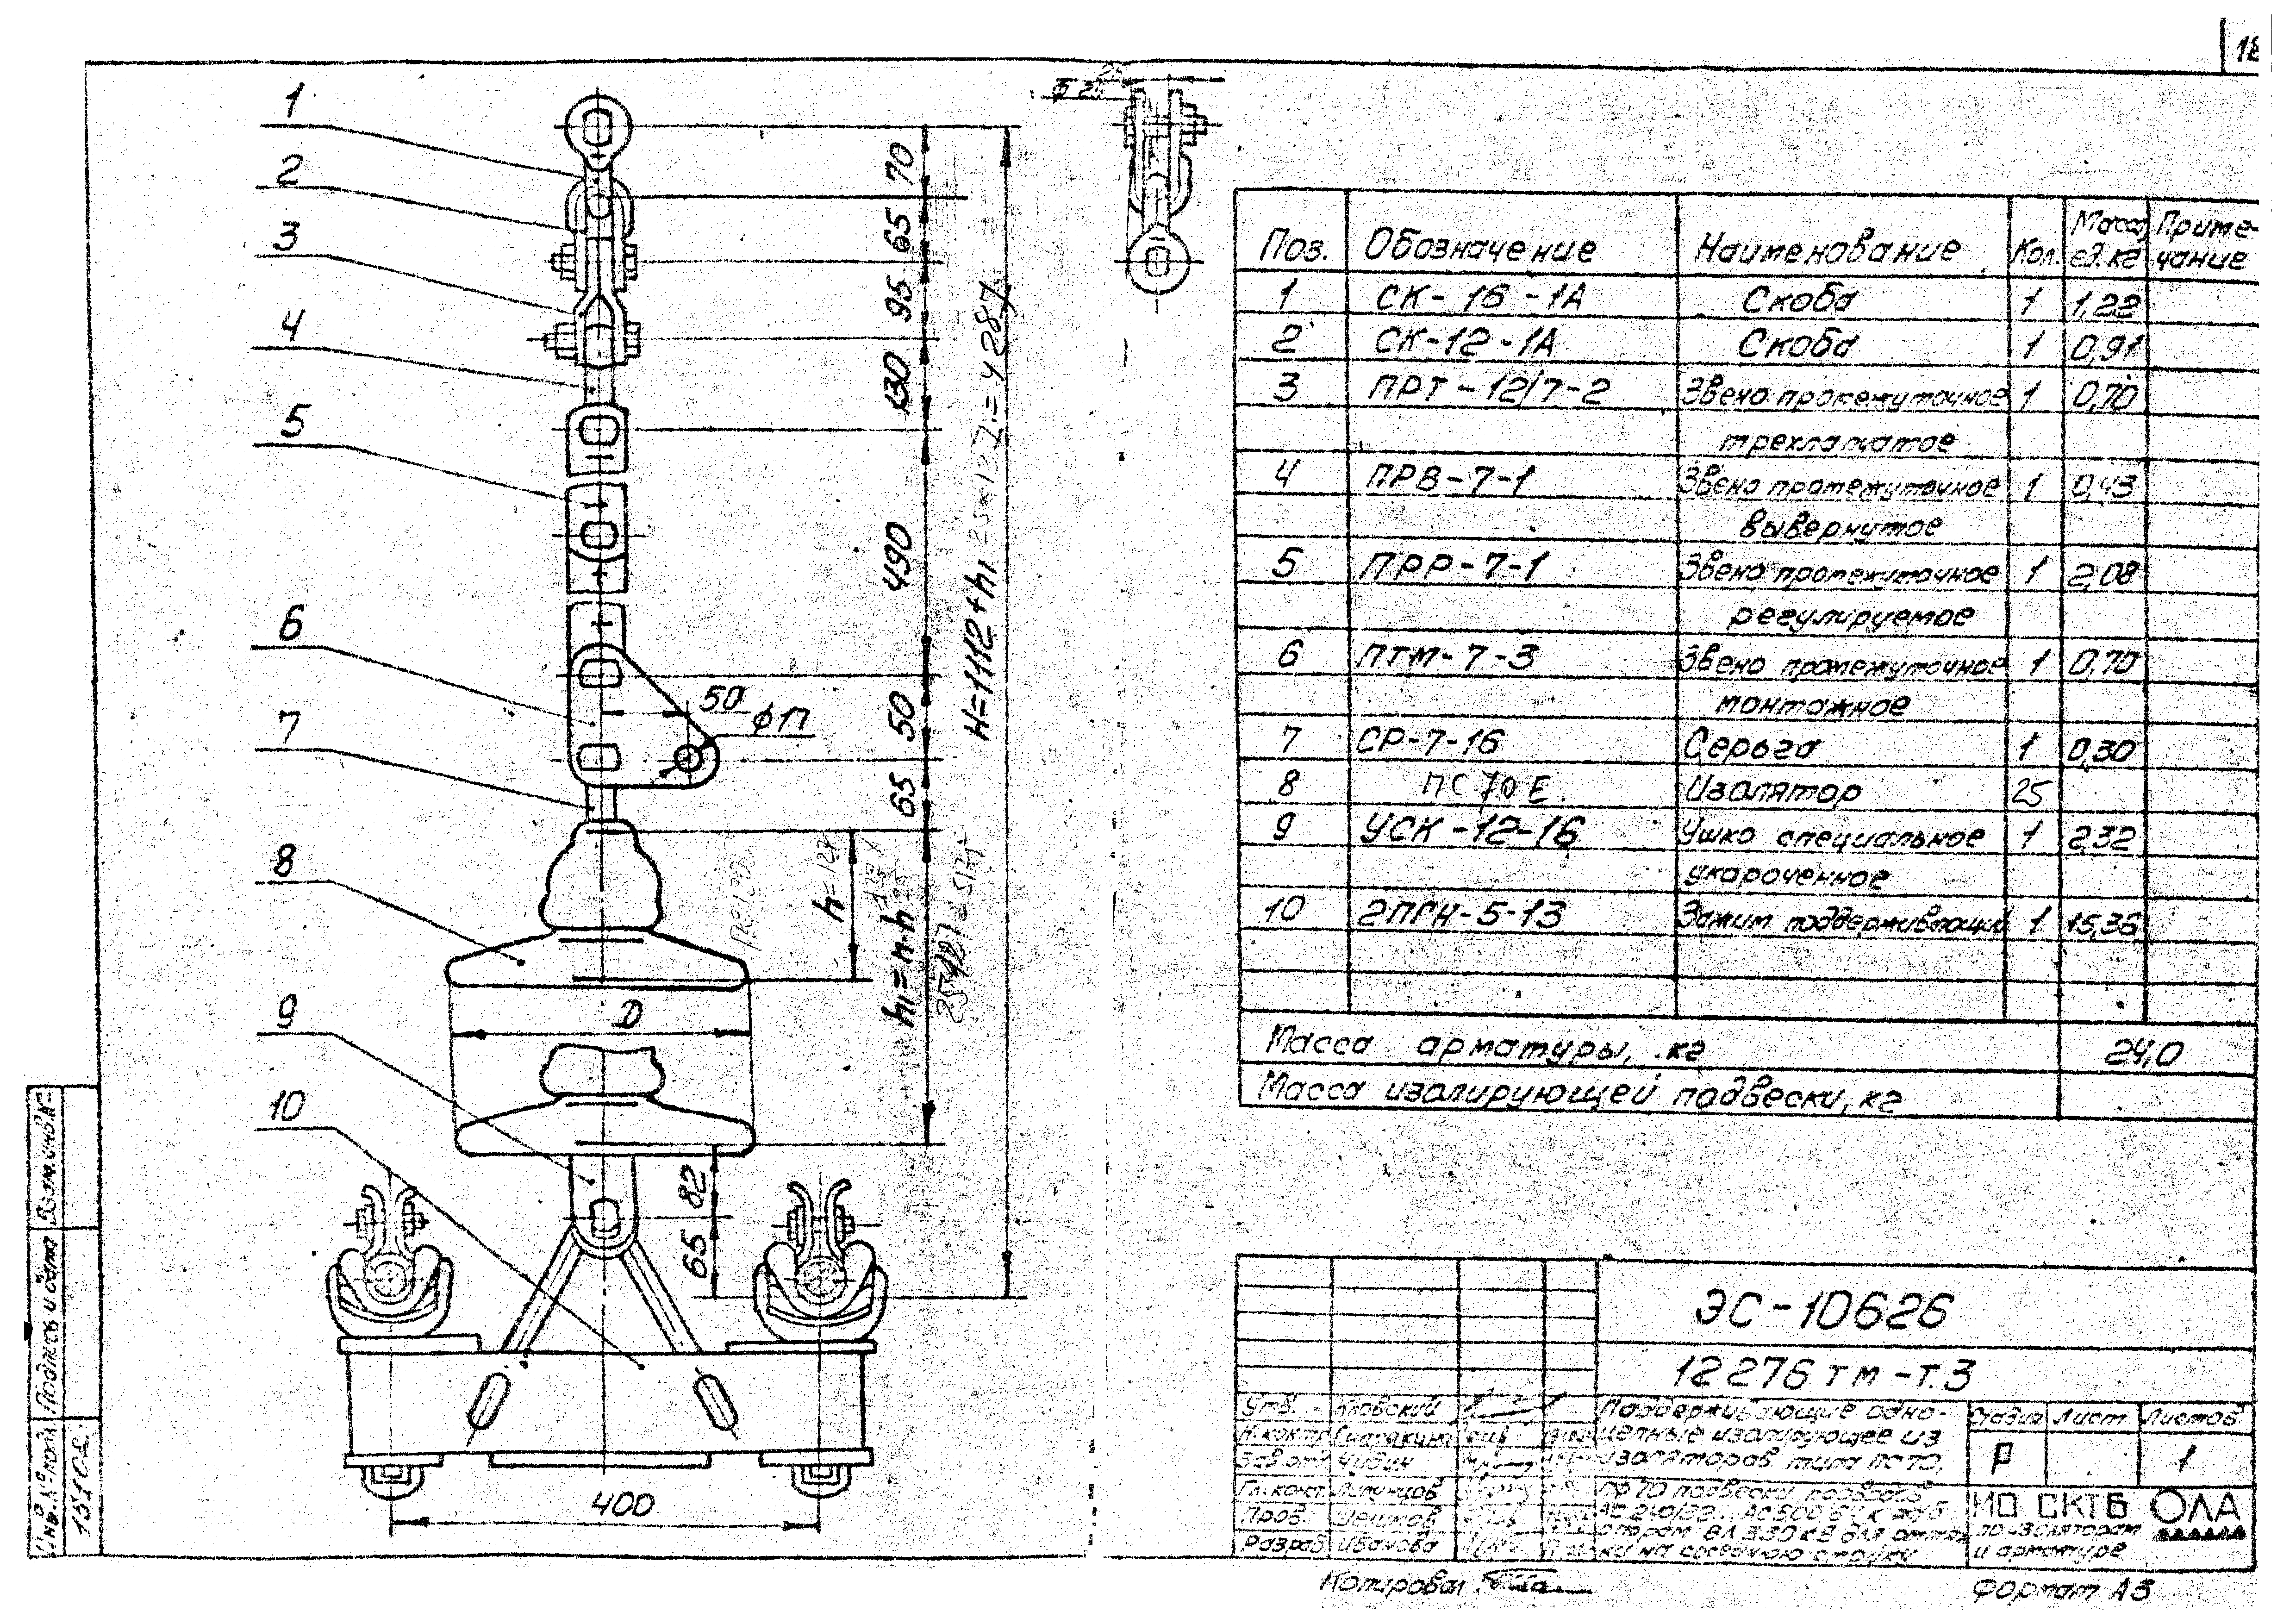 18
1
2
3
4
5
6
7
8
9
10
70
65
95
130
490
50
65
50
ф17
H=1112+h1
h=127
h1=n·h
D
82
65
400
Поз. Обозначение Наименование Кол. Масса ед. кг Приме-чание
1 СК-16-1А Скоба 1 1,22
2 СК-12-1А Скоба 1 0,91
3 ПРТ-12/7-2 Звено промежуточное 1 0,70
трехлапчатое
4 ПРВ-7-1 Звено промежуточное 1 0,43
вывернутое
5 ПРР-7-1 Звено промежуточное 1 2,08
регулируемое
6 ПТМ-7-3 Звено промежуточное 1 0,70
монтажное
7 СР-7-16 Серьга 1 0,30
8 ПС 70 Е Изолятор 25
9 УСК-12-16 Ушко специальное 1 2,32
укороченное
10 2ПГН-5-13 Зажим поддерживающий 1 15,36
Масса арматуры, кг 24,0
Масса изолирующей подвески, кг
ЭС-10626
12276тм-т.3
Утв.
Н.контр
Гл. конт.
Пров.
Разраб Иванова
Поддерживающие одно-
цепные изолирующее из
изоляторов типа ПС70,
Стадия Лист Листов
Р 1
МО СКТБ ОЛА
по изоляторам
и арматуре
Взам. инв. №
Подпись и дата
Инв. № подл.
Копировал
Формат А3